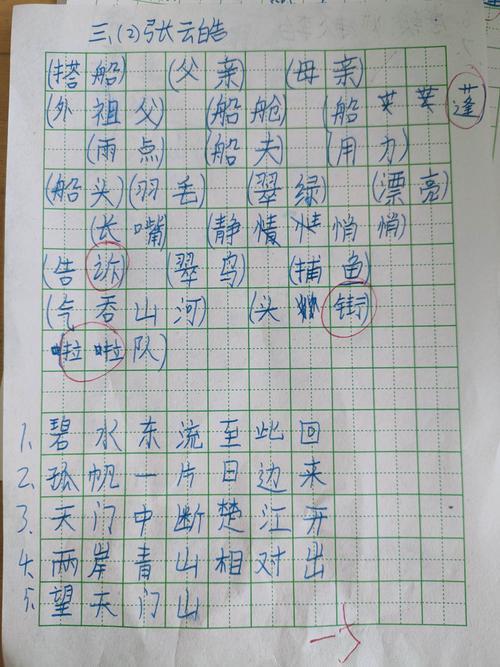 三、(2)张云皓
(搭船) (父亲) (母亲)
(外祖父) (船舱) (船 蓬
(雨点) (船夫) (用力)
(船头)(羽毛) (翠绿) (漂亮)
(长嘴) (静悄悄悄)
(告诉) (翠鸟) (捕鱼)
(气吞山河) (头
啦啦队)
1、碧水东流至此回
2、孤帆一片日边来
3、天门中断楚江开
4、两岸青山相对出
5、望天门山